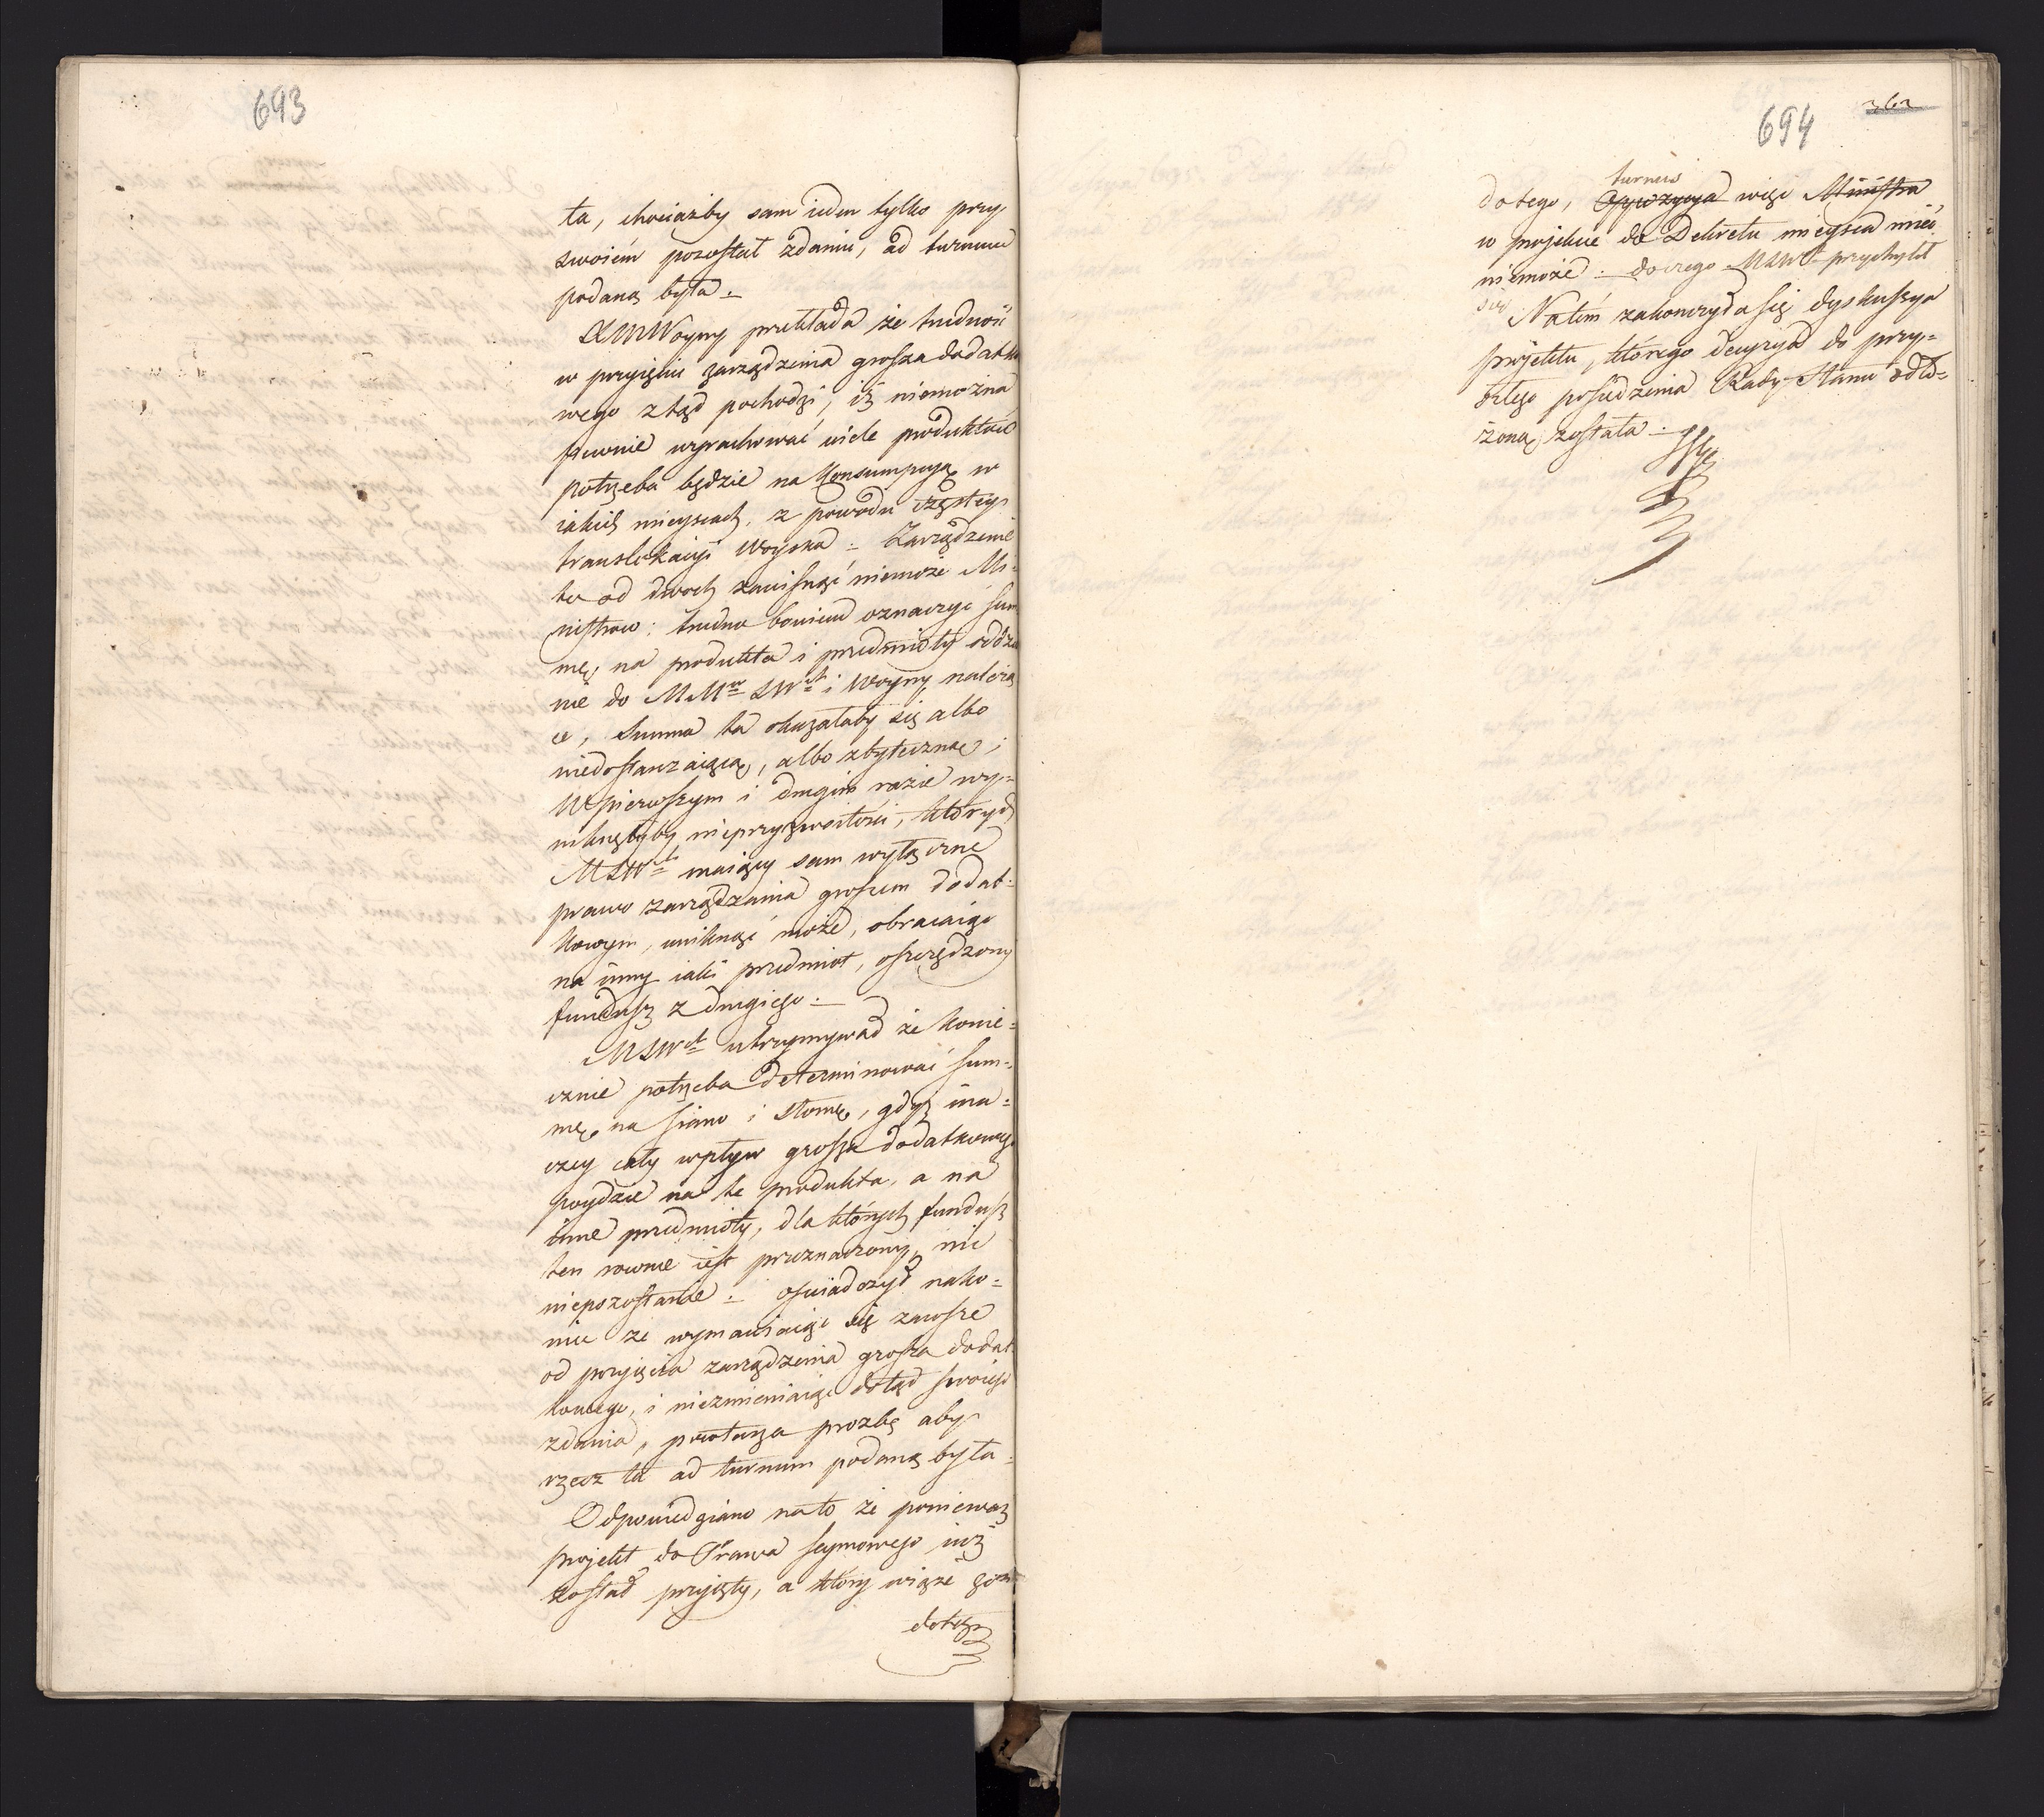 693
ta, chociażby sam ieden tylko przy
swoiem pozostał zdaniu, ad turnum
podaną była.
XMWoyny przekłada że trudność
w przyięciu zarządzenia grosza dodatko
wego ztąd pochodzi, iż niemożna
pewnie wyrachować wiele produktów
potrzeba będzie na Konsumpcyą w
iakich mieyscach, z powodu częstey
translokacyi Woyska. Zarządzenie
to od dwoch zawisnąć niemoże Mi=
nistrow: trudno bowiem oznaczyć sum
mę, na produkta i przedmioty oddziel
nie do MMów SWch i Woyny należą
ce, Summa ta okazałaby się albo
niedostarczaiącą, albo zbyteczną;
W pierwszym i drugim razie wy=
niknęłyby nieprzyzwoitości, których
MSWch maiący sam wyłączne
prawo zarządzania groszem dodat=
kowym, uniknąć może, obracaiąc
na inny iaki przedmiot, oszczędzony
fundusz z drugiego.
MSWch utrzymywał że konie=
cznie potrzeba determinować sum=
mę na siano i słomę, gdyż ina=
czey cały wpływ grosza dodatkowego
poydzie na te produkta, a na
inne przedmioty, dla których fundusz
ten rownie iest przeznaczony, nic
niepozostanie. Oświadczył nako=
niec że wymawiaiąc się zawsze
od przyięcia zarządzenia grosza dodat
kowego, i niezmieniaiąc dotąd swoiego
zdania, powtarza prozbę aby
rzecz ta ad turnum podaną była.
Odpowiedziano nato że ponieważ
projekt do Prawa seymowego iuż
został przyięty, a który wiąże
dotego
694
362
turnus
dotego, Oppozycya więc Ministra
w projekcie do Dekretu mieysca mieć
niemoże. do czego MSWch przychylił
się Natém zakończyła się dyskussya
projektu, którego decyzya do przy=
szłego posiedzenia Rady Stanu odło=
żoną została.